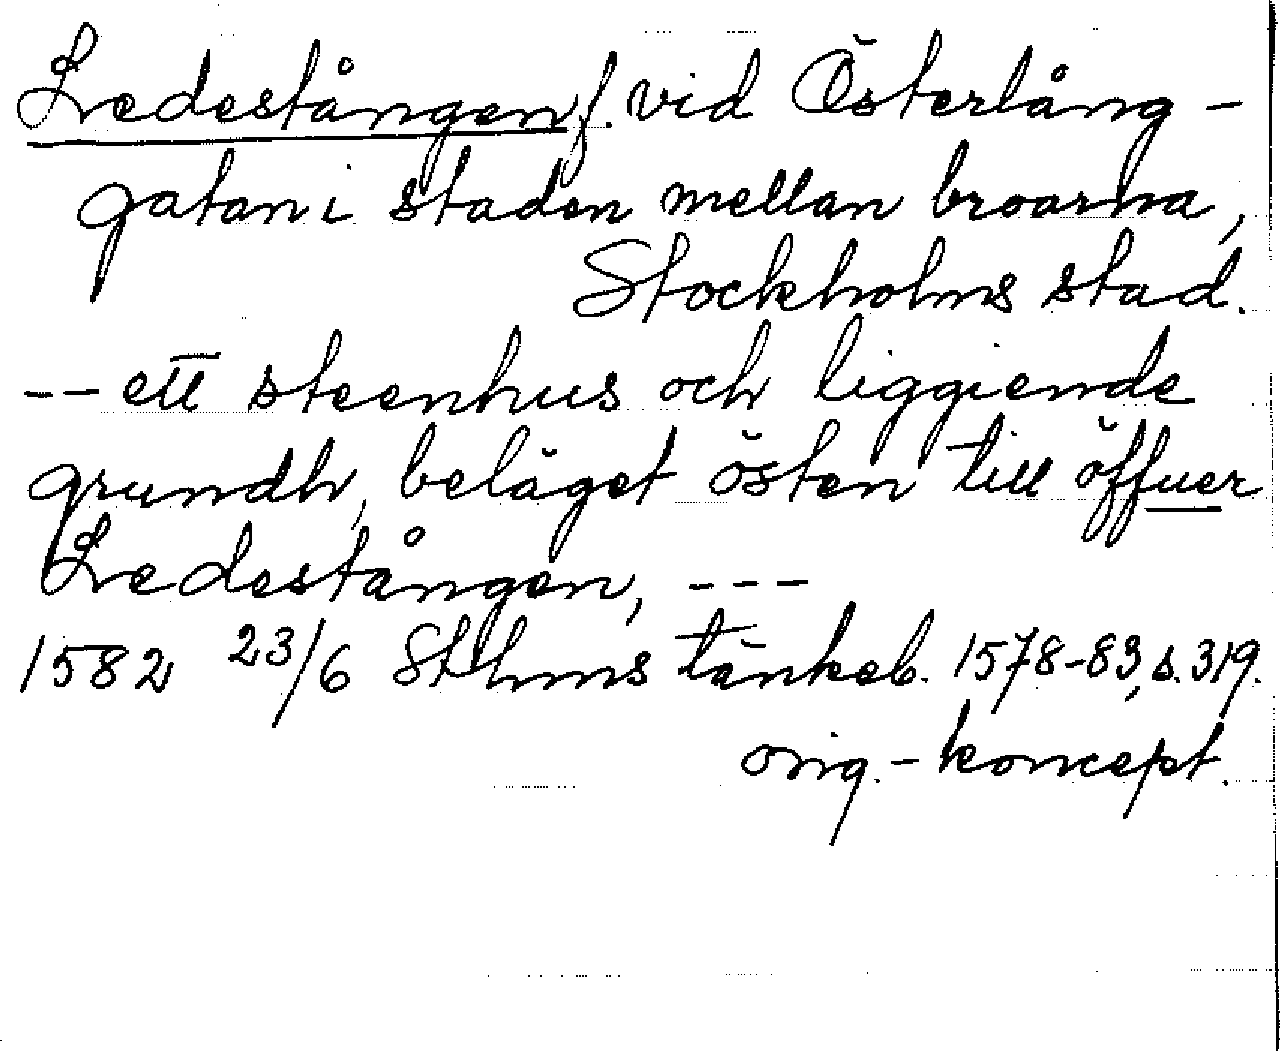 Ledestången f. vid Österlång-
gatan i staden mellan broarna,
Stockholms stad.
-- ett steenhus och liggiende
grundh, beläget östen till öffuer
Ledestången, ---
1582 23/6 Sthms tänkeb. 1578-83, s. 319.
orig.-koncept.